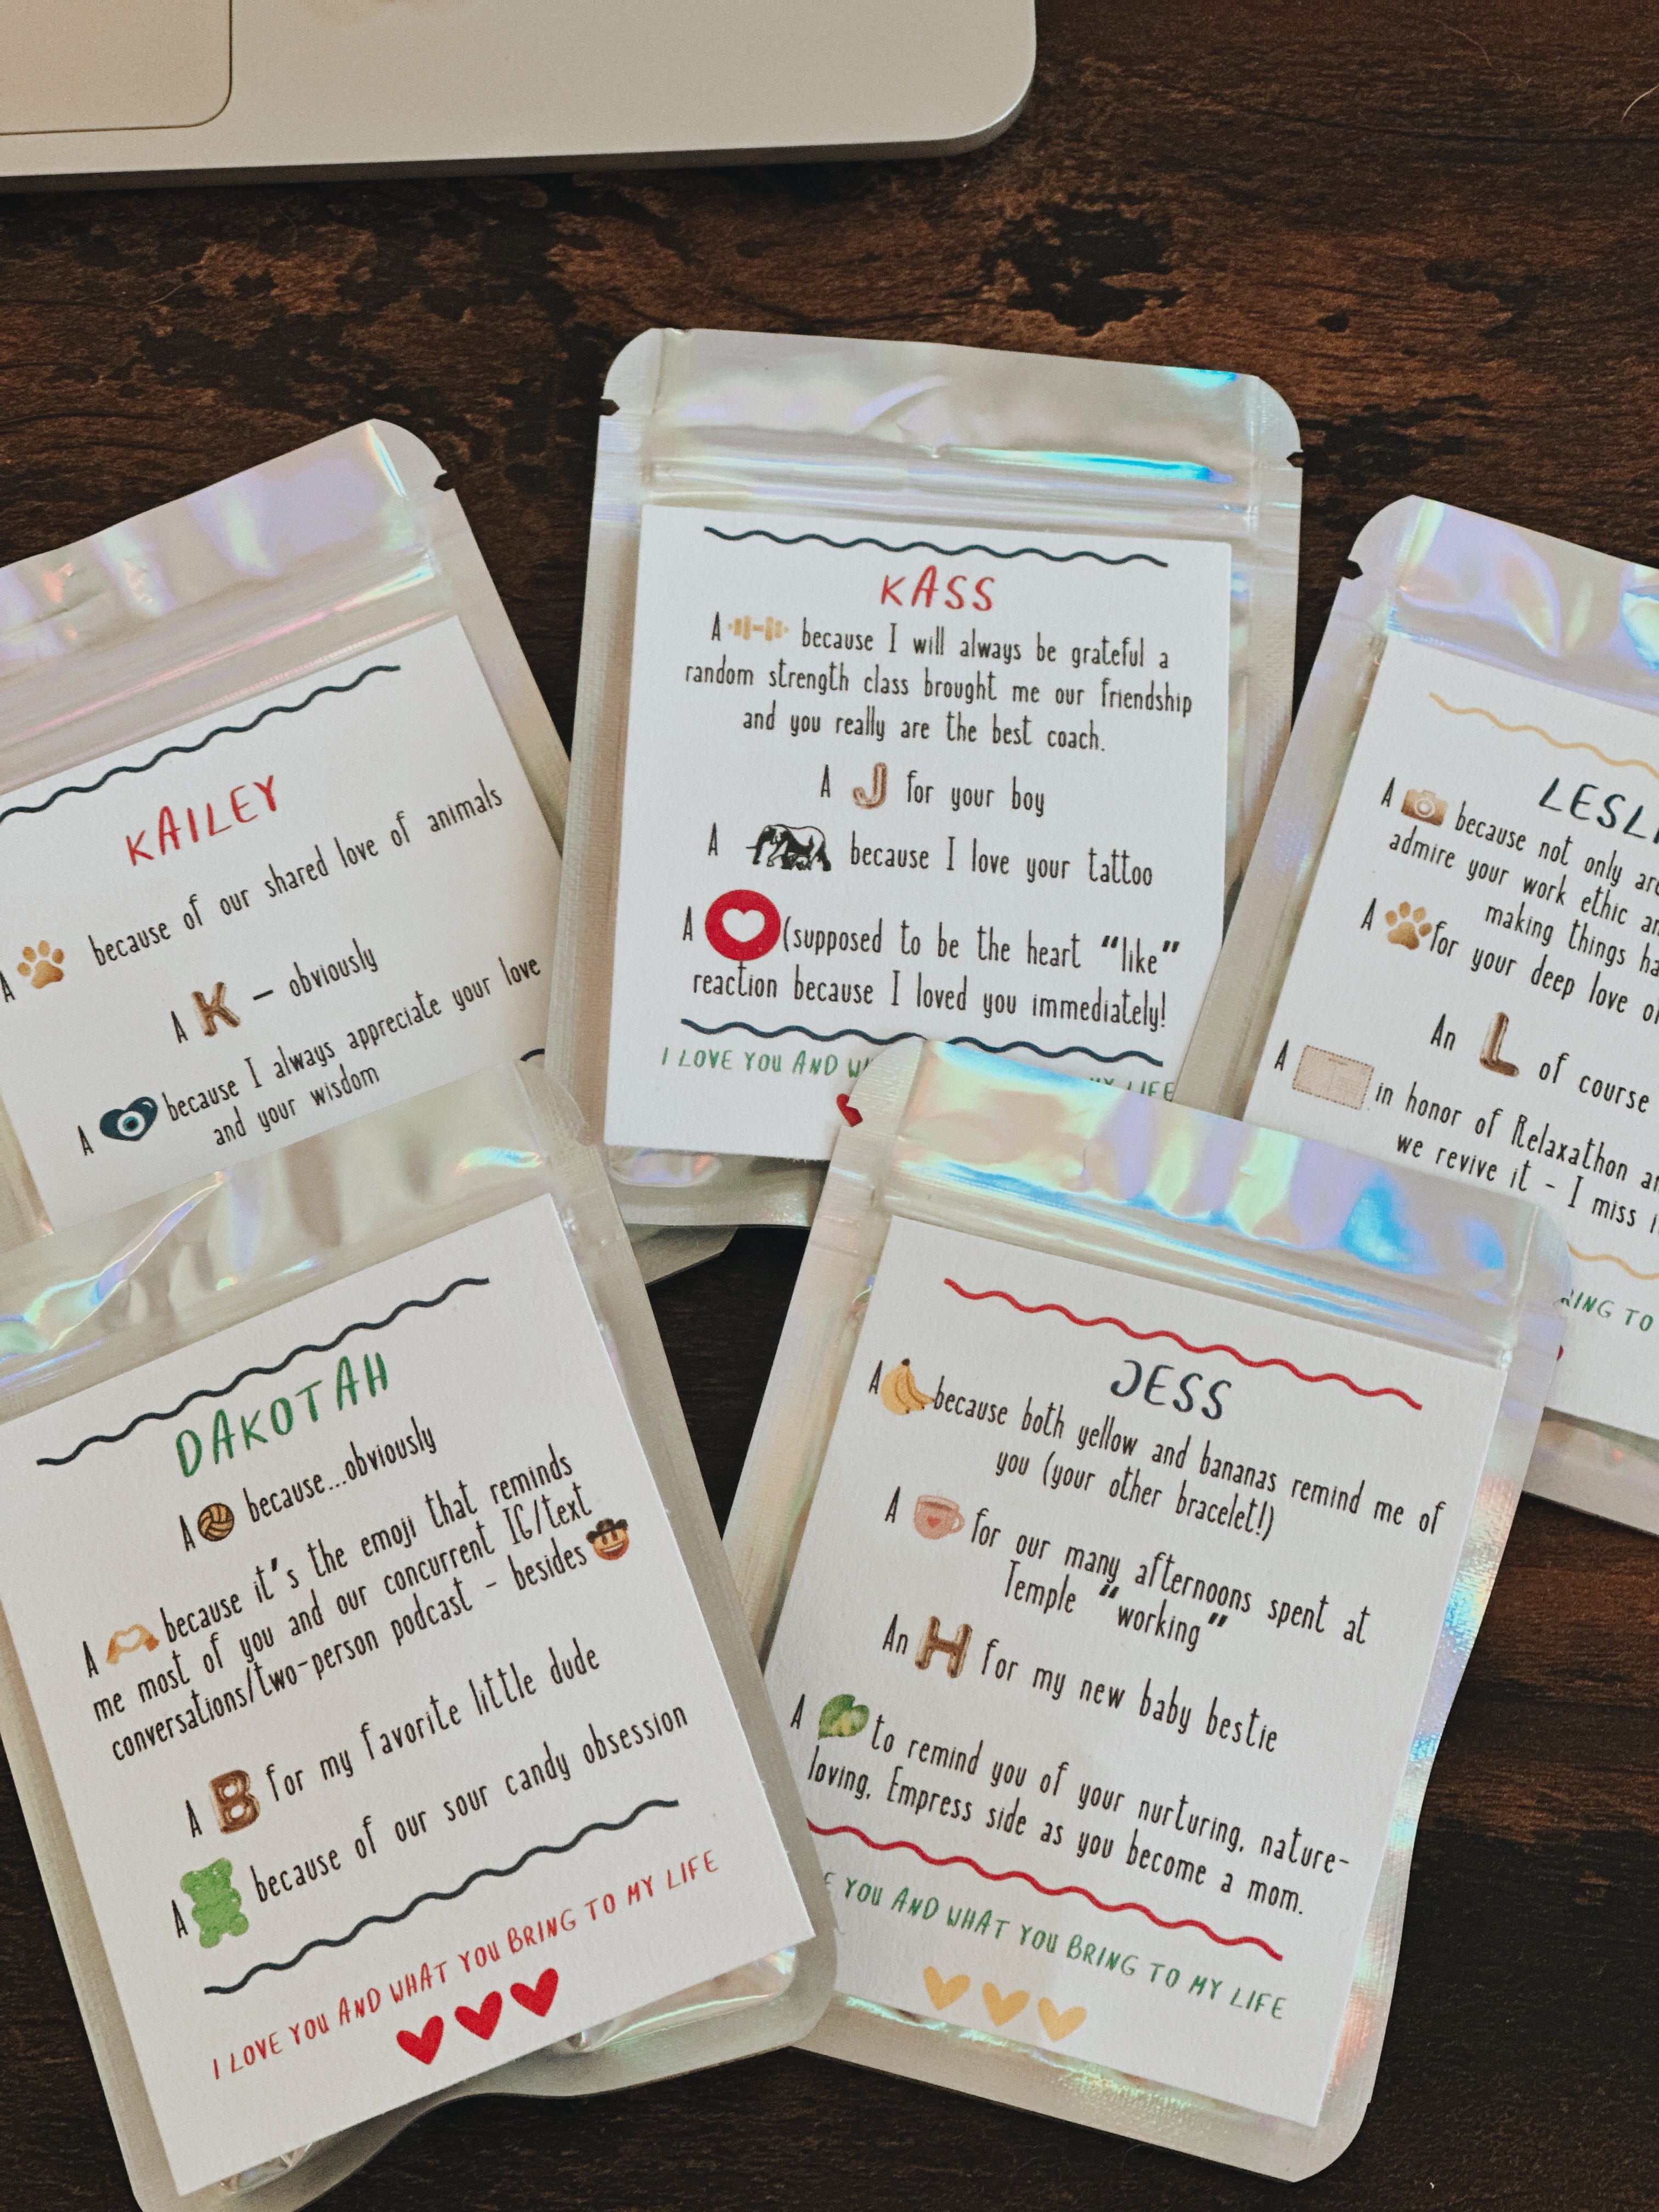 KAILEY
A because of our shared love of animals
A K - obviously
A because I always appreciate your love
and your wisdom
KASS
A because I will always be grateful a
random strength class brought me our friendship
and you really are the best coach.
A J for your boy
A because I love your tattoo
A (supposed to be the heart “like”
reaction because I loved you immediately!
I LOVE YOU AND MY LIFE
LESL
A because not only are
admire your work ethic
making things
A for your deep love
An L of course
A in honor of Relaxathon
we revive it - I miss
BRING TO
DAKOTAH
A because...obviously
A because it's the emoji that reminds
me most of you and our concurrent IG/text
conversations/two-person podcast - besides
A B for my favorite little dude
A because of our sour candy obsession
I LOVE YOU AND WHAT YOU BRING TO MY LIFE
JESS
A because both yellow and bananas remind me of
you (your other bracelet!)
A for our many afternoons spent at
Temple “working”
An H for my new baby bestie
A to remind you of your nurturing, nature-
loving, Empress side as you become a mom.
YOU AND WHAT YOU BRING TO MY LIFE